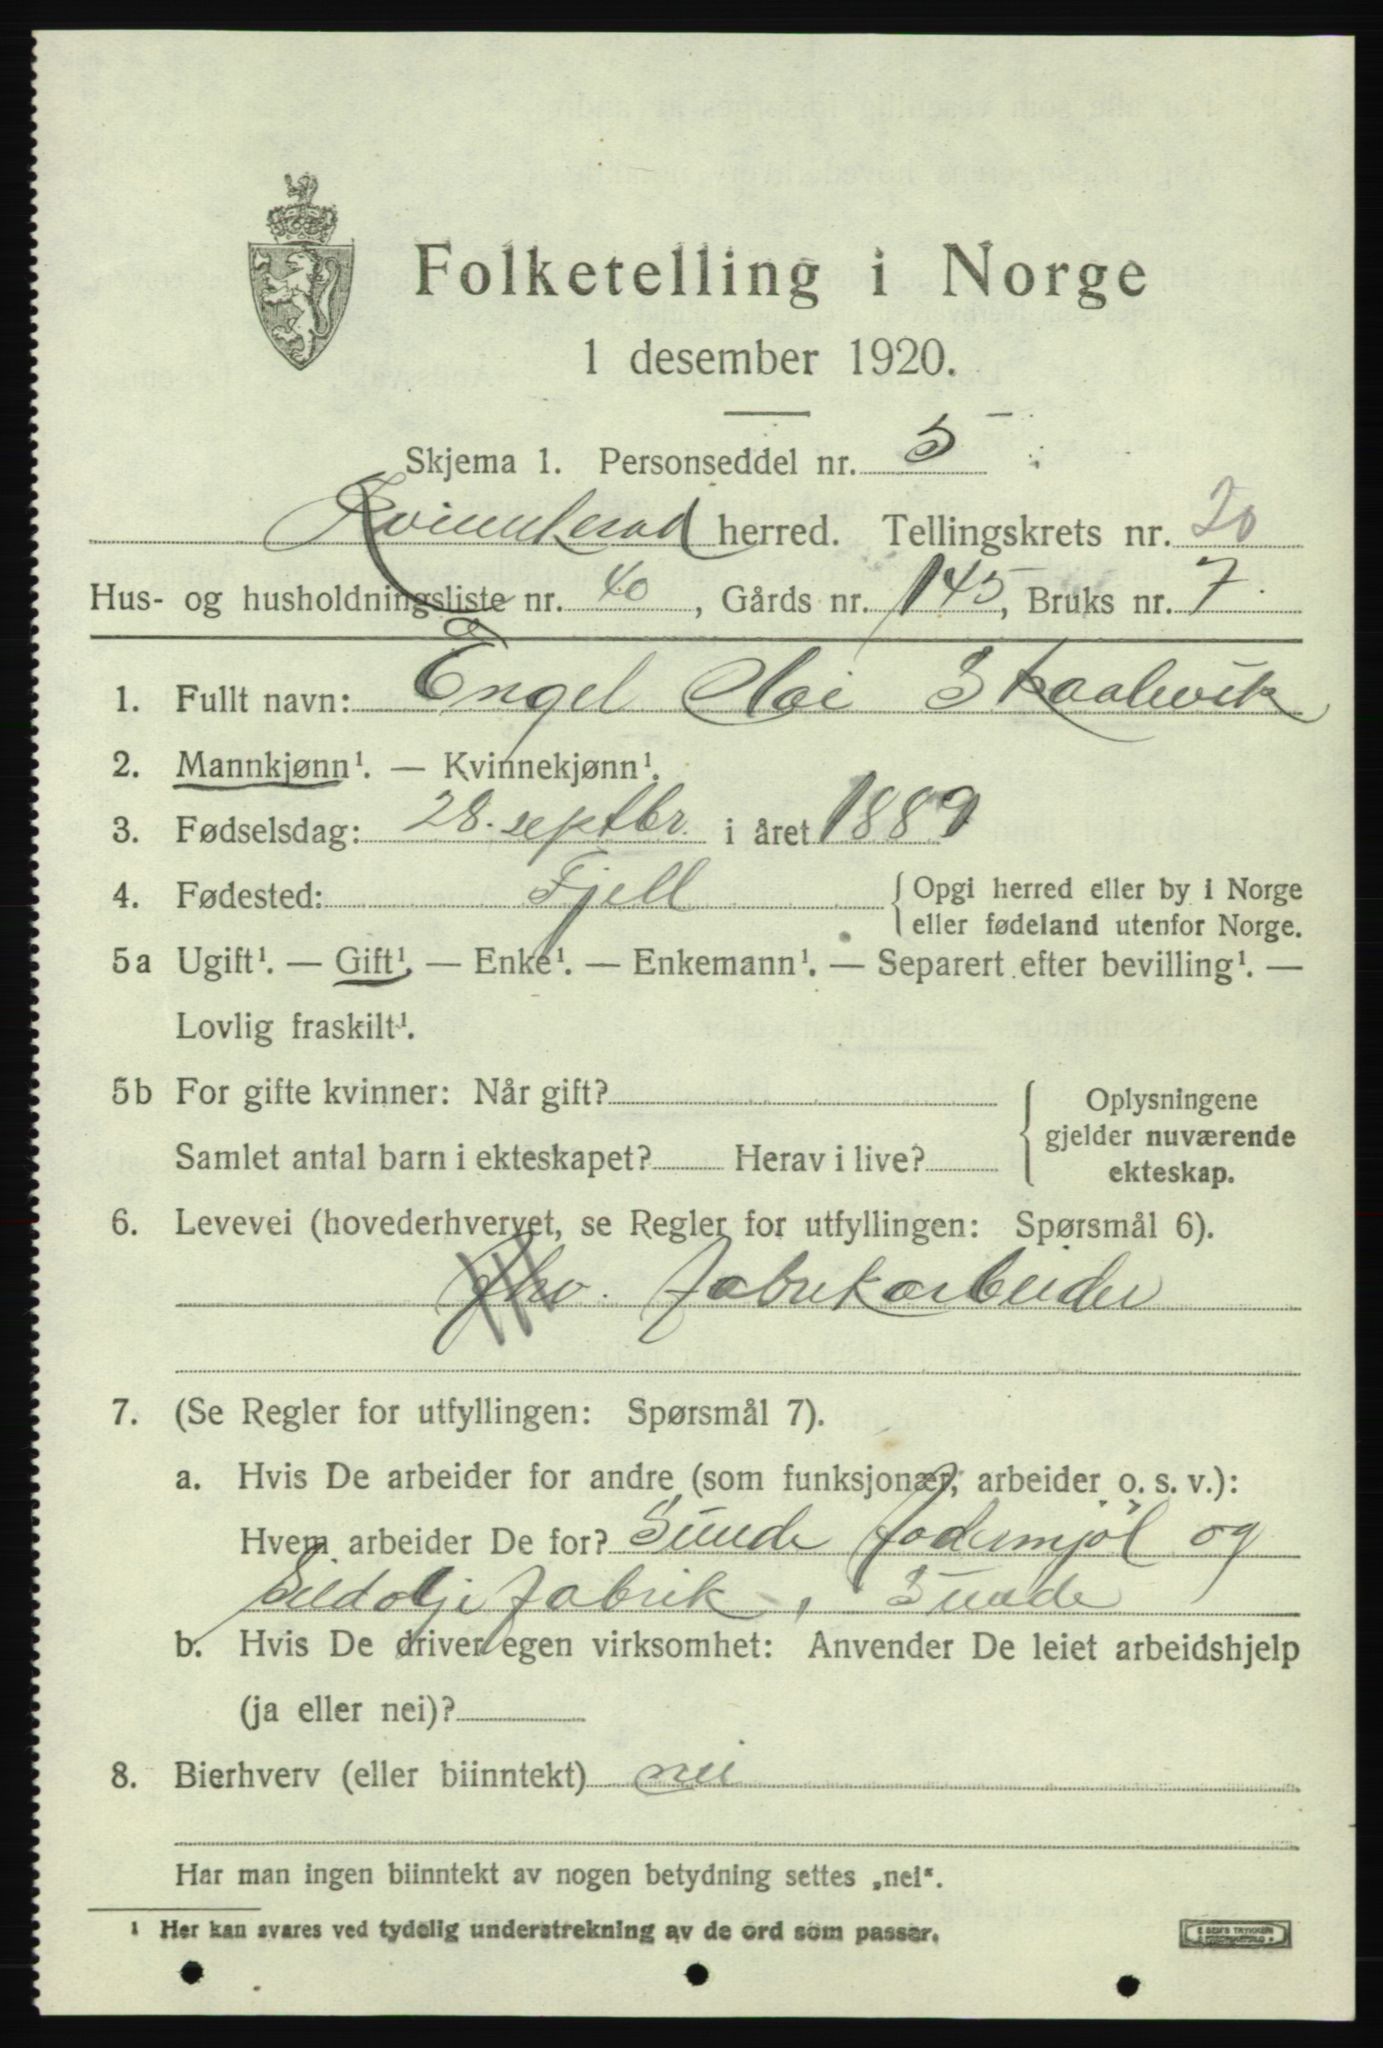 Folketelling i Norge
1 desember 1920.
Skjema 1. Personseddel nr. 5
Kvinnherad herred. Tellingskrets nr. 20
Hus- og husholdningsliste nr. 40, Gårds nr. 145, Bruks nr. 7
1. Fullt navn: Engel Skaalevik
2. Mannkjønn¹. — Kvinnekjønn¹.
3. Fødselsdag: 28. septbr. i året 1889
4. Fødested: Fjell { Opgi herred eller by i Norge
eller fødeland utenfor Norge.
5a Ugift¹. — Gift¹. — Enke¹. — Enkemann¹. — Separert efter bevilling¹. —
Lovlig fraskilt¹.
5b For gifte kvinner: Når gift? { Oplysningene
gjelder nuværende
Samlet antal barn i ekteskapet? Herav i live? ekteskap.
6. Levevei (hovederhvervet, se Regler for utfyllingen: Spørsmål 6).
fabrikarbeider
7. (Se Regler for utfyllingen: Spørsmål 7).
a. Hvis De arbeider for andre (som funksjonær, arbeider o. s. v.):
Hvem arbeider De for? Sunde Fodermjöl og
Sildoljefabrik, Sunde
b. Hvis De driver egen virksomhet: Anvender De leiet arbeidshjelp
(ja eller nei)?
8. Bierhverv (eller biinntekt) nei
Har man ingen biinntekt av nogen betydning settes „nei“.
¹ Her kan svares ved tydelig understrekning av de ord som passer.